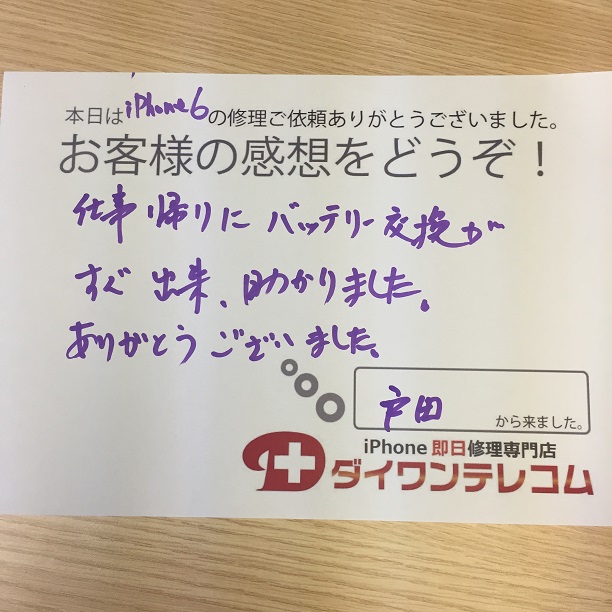 本日はiPhone6の修理ご依頼ありがとうございました。
お客様の感想をどうぞ！
仕事帰りにバッテリー交換が
すぐ出来、助かりました。
ありがとうございました。
戸田 から来ました。
iPhone 即日修理専門店
ダイワンテレコム